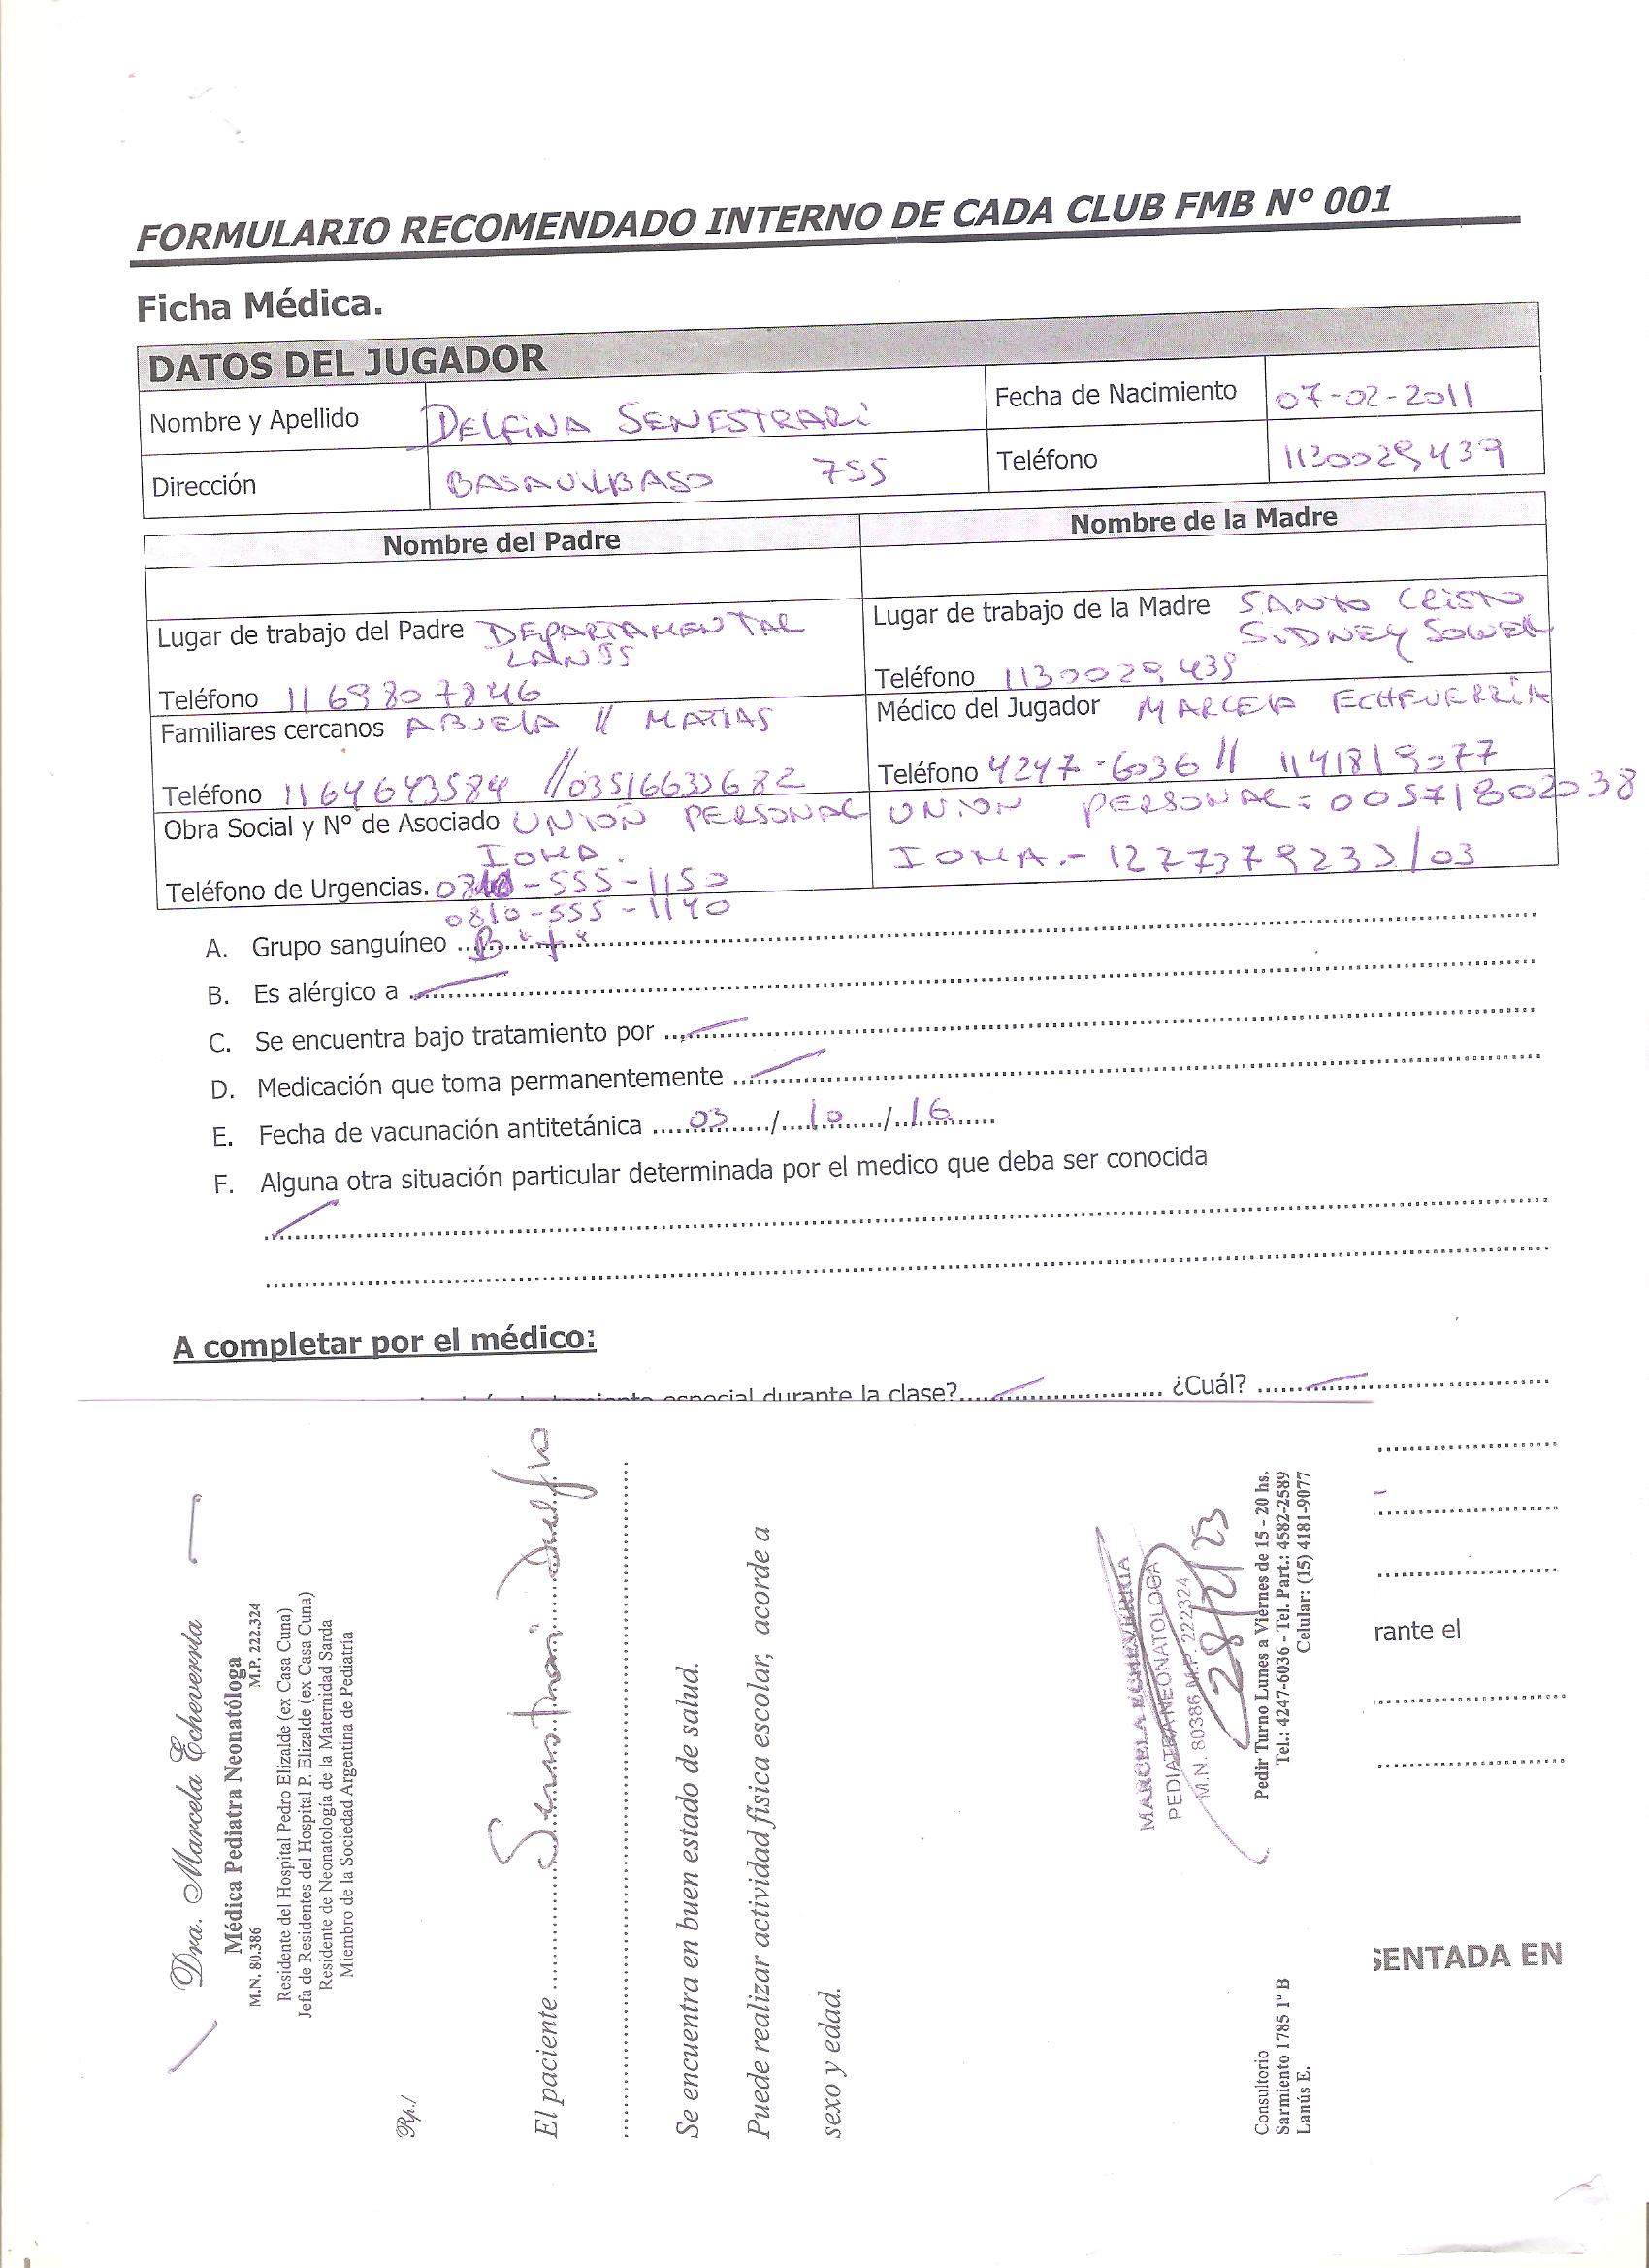 FORMULARIO RECOMENDADO INTERNO DE CADA CLUB FMB N° 001
Ficha Médica.
DATOS DEL JUGADOR
Nombre y Apellido DELFINA SENESTRARI Fecha de Nacimiento 07-02-2011
Dirección BASAVILBASO 755 Teléfono 1130029439
Nombre del Padre Nombre de la Madre
Lugar de trabajo del Padre DEPARTAMENTAL
LANUS
Teléfono 11 69807846
Lugar de trabajo de la Madre SANTO CRISTO
SIDNEY SOWELL
Teléfono 1130029439
Familiares cercanos ABUELA // MATIAS
Teléfono 1164643584 //03516633682
Médico del Jugador MARCELA ECHEVERRIA
Teléfono 4247-6036 // 1141819077
Obra Social y N° de Asociado UNION PERSONAL
IOMA.
UNION PERSONAL = 00571802038
IOMA.- 1227379233/03
Teléfono de Urgencias. 0810-555-1150
0810-555-1140
A. Grupo sanguíneo B "+"
B. Es alérgico a
C. Se encuentra bajo tratamiento por
D. Medicación que toma permanentemente
E. Fecha de vacunación antitetánica 03/10/16
F. Alguna otra situación particular determinada por el medico que deba ser conocida
A completar por el médico:
especial durante la clase? ¿Cuál?
rante el
SENTADA EN
Dra. Marcela Echeverría
Médica Pediatra Neonatóloga
M.N. 80.386 M.P. 222.324
Residente del Hospital Pedro Elizalde (ex Casa Cuna)
Jefa de Residentes del Hospital P. Elizalde (ex Casa Cuna)
Residente de Neonatología de la Maternidad Sarda
Miembro de la Sociedad Argentina de Pediatría
Rp./
El paciente Senestrari Delfina
Se encuentra en buen estado de salud.
Puede realizar actividad física escolar, acorde a
sexo y edad.
MARCELA ECHEVERRIA
PEDIATRA NEONATOLOGA
M.N. 80386 M.P. 222324
28/2/23
Consultorio
Sarmiento 1785 1º B
Lanús E.
Pedir Turno Lunes a Viernes de 15 - 20 hs.
Tel.: 4247-6036 - Tel. Part.: 4582-2589
Celular: (15) 4181-9077